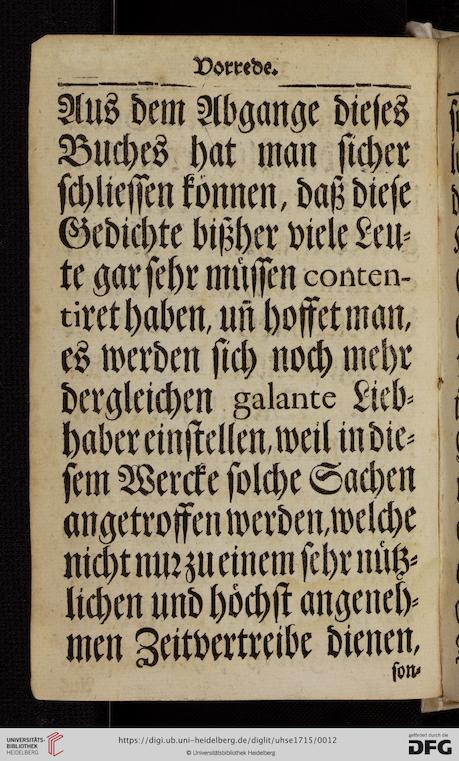 Vorrede.
Aus dem Abgange dieses
Buches hat man sicher
schliessen können, daß diese
Gedichte bißher viele Leu⸗
te gar sehr müssen conten-
tiret haben, un̄ hoffet man,
es werden sich noch mehr
dergleichen galante Lieb⸗
haber einstellen, weil in die⸗
sem Wercke solche Sachen
angetroffen werden, welche
nicht nur zu einem sehr nütz⸗
lichen und höchst angeneh⸗
men Zeitvertreibe dienen,
son⸗
UNIVERSITÄTS-
BIBLIOTHEK
HEIDELBERG
https://digi.ub.uni-heidelberg.de/diglit/uhse1715/0012
© Universitätsbibliothek Heidelberg
gefördert durch die
DFG